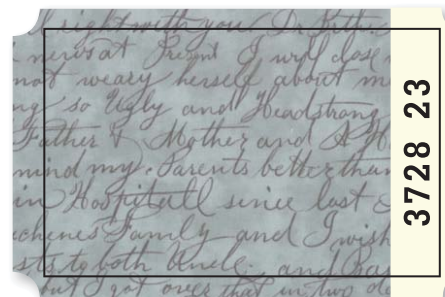 all right with you Dr
news at Present I will close
not weary herself about m
ng so Ugly and Headstrong
Father & Mother and
mind my Parents better than
in Hospitall since last
chenes Family and I wish
sts to both Uncle. and Bas
but I got over that in two da
3728 23